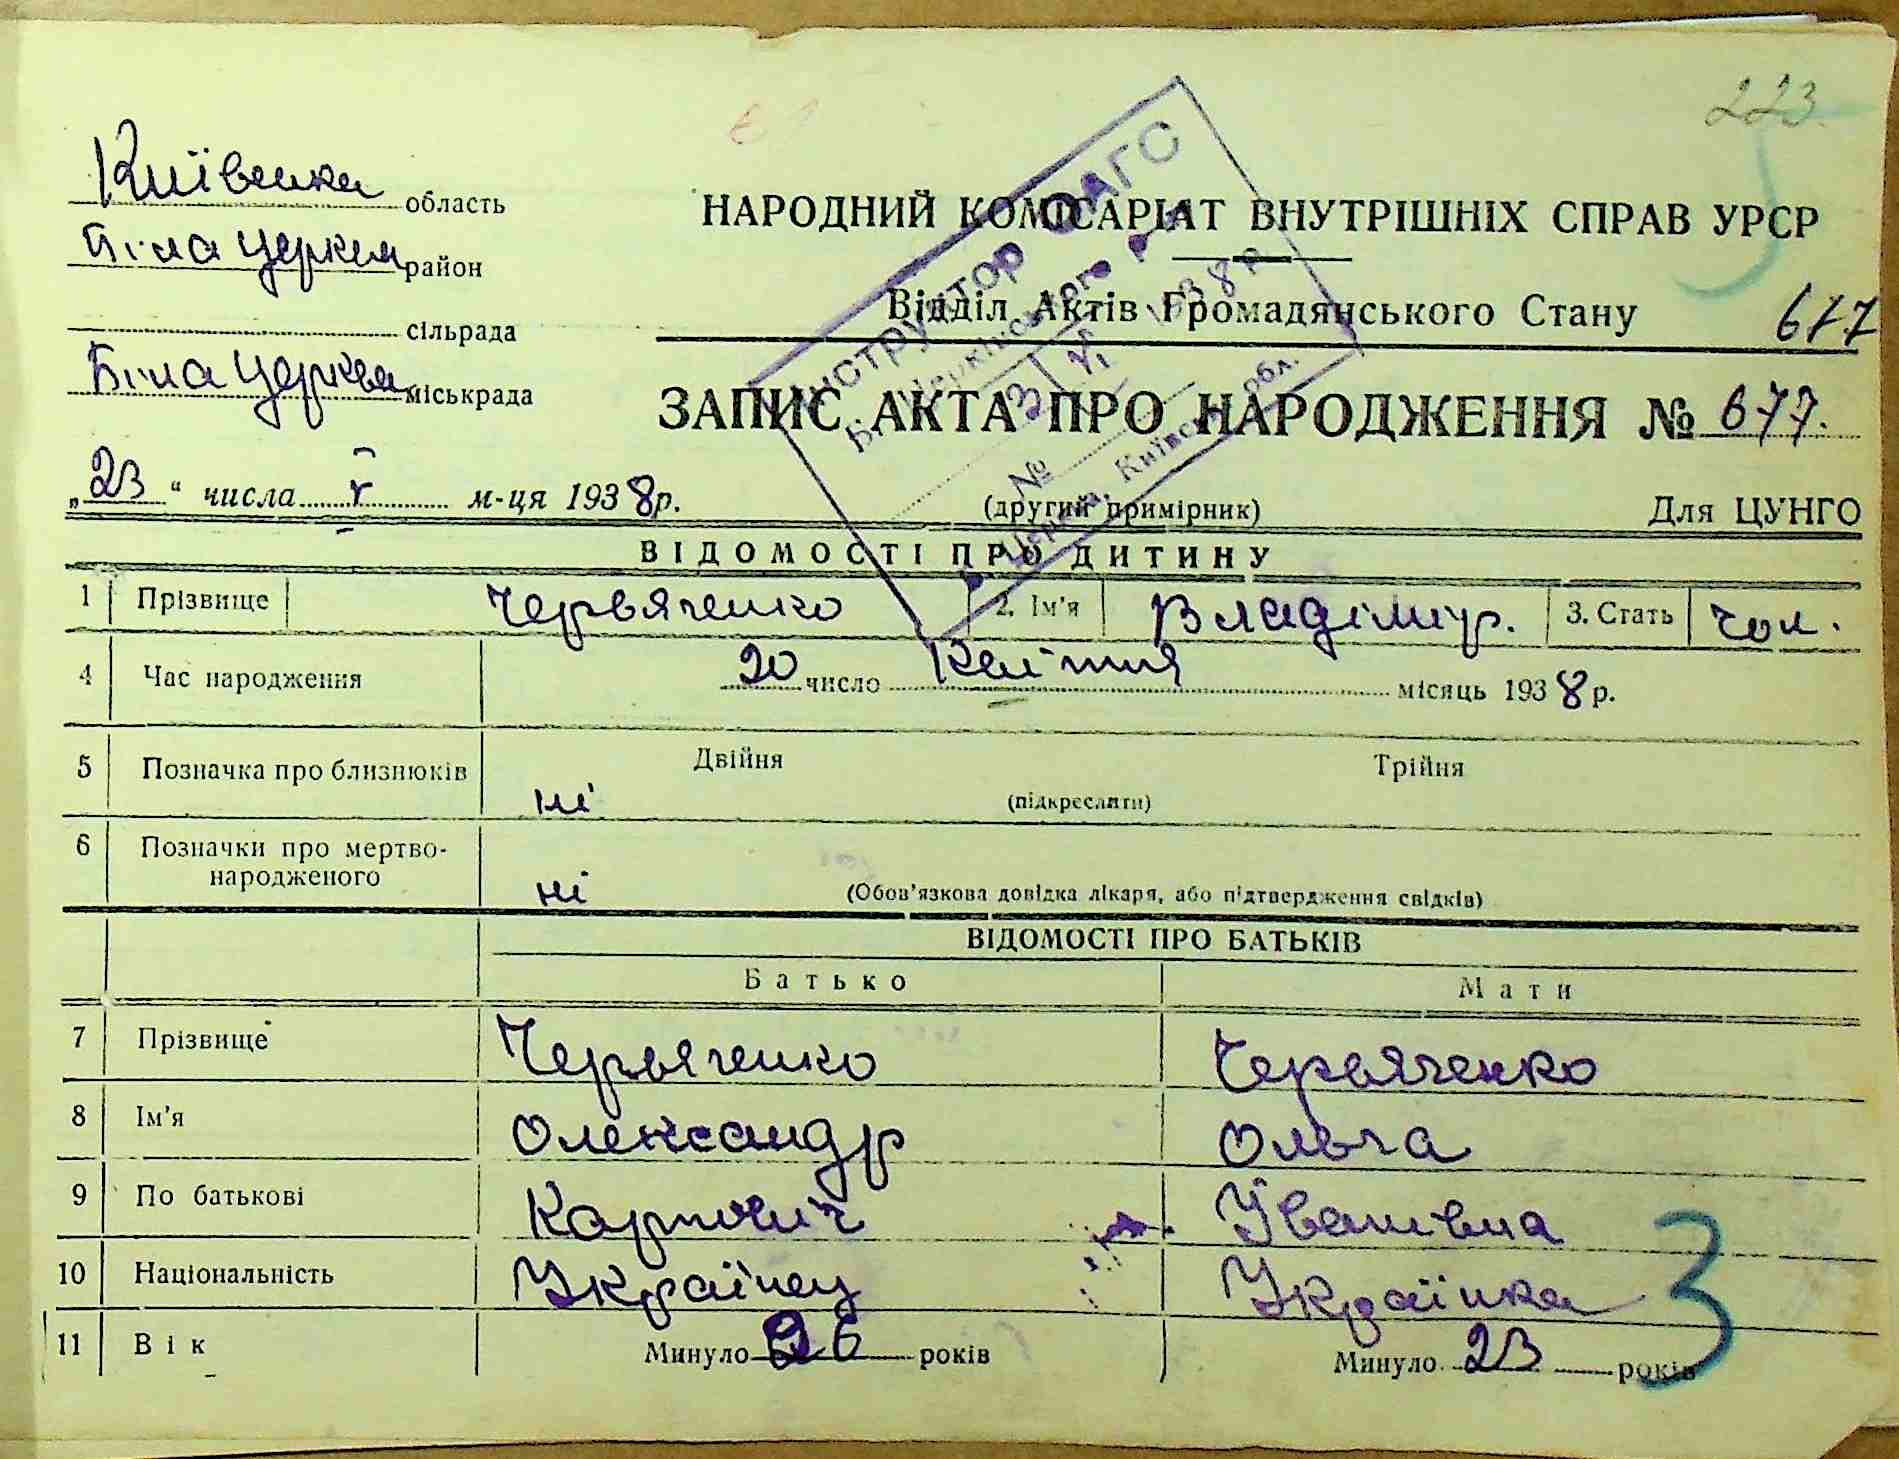 223.
Київська область
НАРОДНИЙ КОМІСАРІАТ ВНУТРІШНІХ СПРАВ УРСР
Біла Церква район
Відділ Актів Громадянського Стану 677
сільрада
Біла Церква міськрада
ЗАПИС АКТА ПРО НАРОДЖЕННЯ № 677.
„23“ числа V м-ця 1938 р.
(другий примірник)
Для ЦУНГО
Інструктор ВАГС
Б. Церківського Р
3 VI 1938 р
№
м. Б. Церква, Київськ. обл.
ВІДОМОСТІ ПРО ДИТИНУ
1 Прізвище Червяченко 2. Ім'я Владімир. 3. Стать чол.
4 Час народження 20 число Квітня місяць 1938 р.
5 Позначка про близнюків ні Двійня Трійня
(підкреслити)
6 Позначки про мертво-
народженого ні (Обов'язкова довідка лікаря, або підтвердження свідків)
ВІДОМОСТІ ПРО БАТЬКІВ
Батько Мати
7 Прізвище Червяченко Червяченко
8 Ім'я Олександр Ольга
9 По батькові Карпович Іванівна
10 Національність Українец Українка
11 Вік Минуло 26 років Минуло 23 років
3